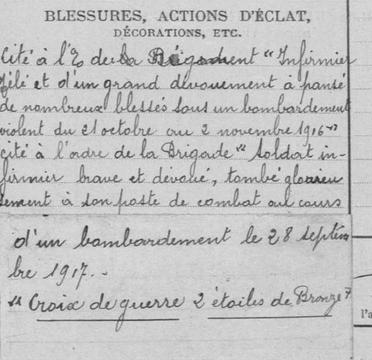 BLESSURES, ACTIONS D'ÉCLAT,
DÉCORATIONS, ETC.
Cité à l'O de la Régiment "Infirmier
zélé et d'un grand dévouement à pansé
de nombreux blessés sous un bombardement
violent du 21 octobre au 2 novembre 1916"
cité à l'ordre de la Brigade "Soldat in-
firmier brave et dévoué, tombé glorieu
sement à son poste de combat au cours
d'un bombardement le 28 septem
bre 1917.
"Croix de guerre 2 étoiles de Bronze"
l'a